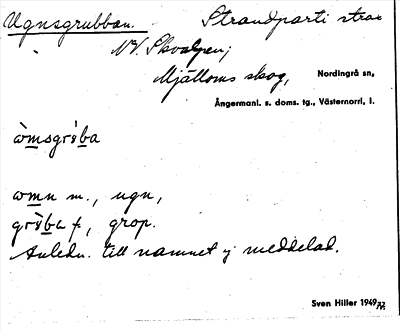 Ugnsgrubban. Strandparti strax
NV. Skvalpen;
Mjälloms skog, Nordingrå sn,
Ångermanl. s. doms. tg., Västernorrl, l.
òmsgrʹba
wmn m., ugn,
f, grop.
Anledn. till namnet ej meddelad.
Sven Hiller 1949